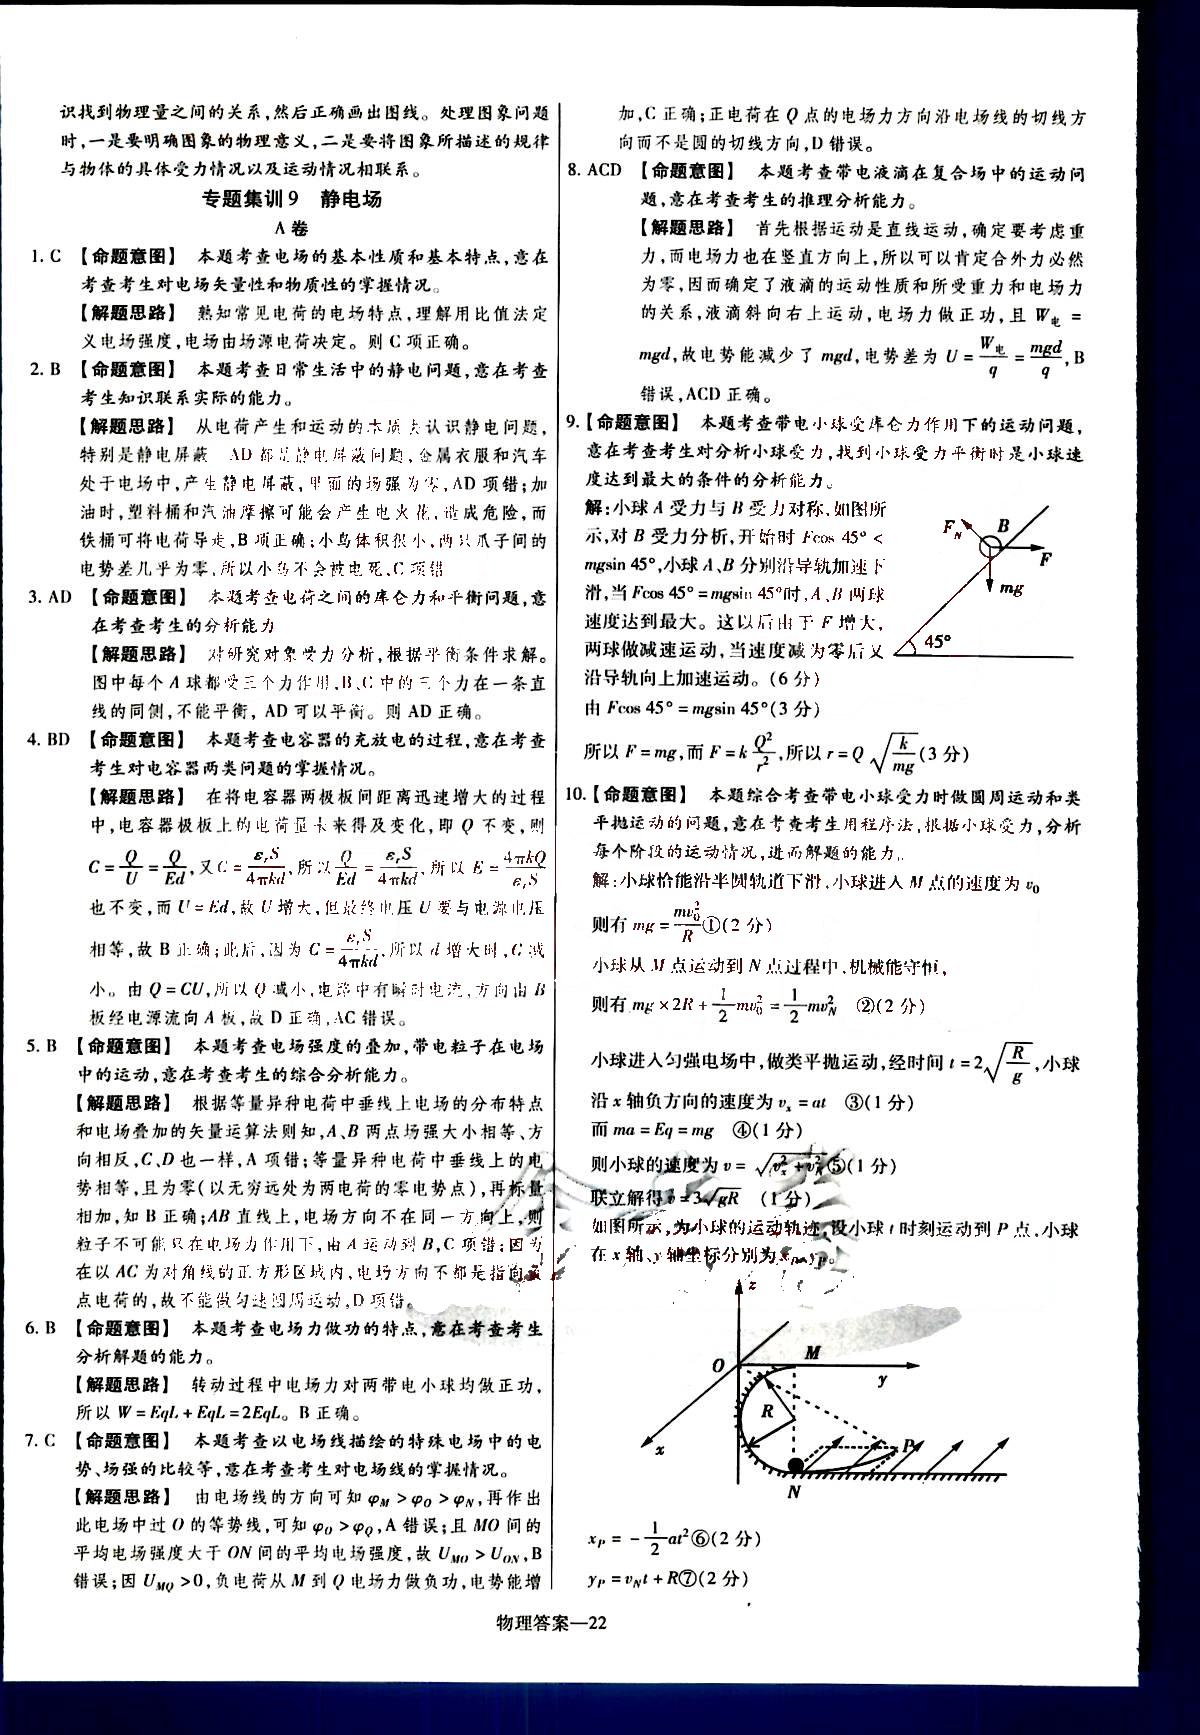 识找到物理量之间的关系,然后正确画出图线。处理图象问题
时,一是要明确图象的物理意义,二是要将图象所描述的规律
与物体的具体受力情况以及运动情况相联系。
专题集训9 静电场
A卷
1. C 【命题意图】 本题考查电场的基本性质和基本特点,意在
考查考生对电场矢量性和物质性的掌握情况。
【解题思路】 熟知常见电荷的电场特点,理解用比值法定
义电场强度,电场由场源电荷决定。则C项正确。
2. B 【命题意图】 本题考查日常生活中的静电问题,意在考查
考生知识联系实际的能力。
【解题思路】 从电荷产生和运动的本质去认识静电问题,
特别是静电屏蔽 AD都是静电屏蔽问题,金属衣服和汽车
处于电场中,产生静电屏蔽,里面的场强为零,AD项错;加
油时,塑料桶和汽油摩擦可能会产生电火花,造成危险,而
铁桶可将电荷导走,B项正确;小鸟体积很小,两只爪子间的
电势差几乎为零,所以小鸟不会被电死,C项错
3. AD 【命题意图】 本题考查电荷之间的库仑力和平衡问题,意
在考查考生的分析能力
【解题思路】 对研究对象受力分析,根据平衡条件求解。
图中每个A球都受三个力作用,B、C中的三个力在一条直
线的同侧,不能平衡, AD可以平衡。则AD正确。
4. BD 【命题意图】 本题考查电容器的充放电的过程,意在考查
考生对电容器两类问题的掌握情况。
【解题思路】 在将电容器两极板间距离迅速增大的过程
中,电容器极板上的电荷量未来得及变化,即Q不变,则
C=Q/U=Q/Ed,又C=εrS/4πkd,所以Q/Ed=εrS/4πkd,所以E=4πkQ/εrS
也不变,而U=Ed,故U增大,但最终电压U要与电源电压
相等,故B正确;此后,因为C=εrS/4πkd,所以d增大时,C减
小。由Q=CU,所以Q减小,电路中有瞬时电流,方向由B
板经电源流向A板,故D正确,AC错误。
5. B 【命题意图】 本题考查电场强度的叠加,带电粒子在电场
中的运动,意在考查考生的综合分析能力。
【解题思路】 根据等量异种电荷中垂线上电场的分布特点
和电场叠加的矢量运算法则知,A、B两点场强大小相等、方
向相反,C、D也一样,A项错;等量异种电荷中垂线上的电
势相等,且为零(以无穷远处为两电荷的零电势点),再标量
相加,知B正确;AB直线上,电场方向不在同一方向上,则
粒子不可能只在电场力作用下,由A运动到B,C项错;因为
在以AC为对角线的正方形区域内,电场方向不都是指向
点电荷的,故不能做匀速圆周运动,D项错。
6. B 【命题意图】 本题考查电场力做功的特点,意在考查考生
分析解题的能力。
【解题思路】 转动过程中电场力对两带电小球均做正功,
所以W=EqL+EqL=2EqL。B正确。
7. C 【命题意图】 本题考查以电场线描绘的特殊电场中的电
势、场强的比较等,意在考查考生对电场线的掌握情况。
【解题思路】 由电场线的方向可知φM>φO>φN,再作出
此电场中过O的等势线,可知φO>φQ,A错误;且MO间的
平均电场强度大于ON间的平均电场强度,故UMO>UON,B
错误;因UMQ>0,负电荷从M到Q电场力做负功,电势能增
加,C正确;正电荷在Q点的电场力方向沿电场线的切线方
向而不是圆的切线方向,D错误。
8. ACD 【命题意图】 本题考查带电液滴在复合场中的运动问
题,意在考查考生的推理分析能力。
【解题思路】 首先根据运动是直线运动,确定要考虑重
力,而电场力也在竖直方向上,所以可以肯定合外力必然
为零,因而确定了液滴的运动性质和所受重力和电场力
的关系,液滴斜向右上运动,电场力做正功,且W电=
mgd,故电势能减少了mgd,电势差为U=W电/q=mgd/q,B
错误,ACD正确。
9. 【命题意图】 本题考查带电小球受库仑力作用下的运动问题,
意在考查考生对分析小球受力,找到小球受力平衡时是小球速
度达到最大的条件的分析能力。
解:小球A受力与B受力对称,如图所
示,对B受力分析,开始时Fcos 45°<
mgsin 45°,小球A、B分别沿导轨加速下
滑,当Fcos 45°=mgsin 45°时,A、B两球
速度达到最大。这以后由于F增大,
两球做减速运动,当速度减为零后又
沿导轨向上加速运动。(6分)
FN B F mg 45°
由Fcos 45°=mgsin 45°(3分)
所以F=mg,而F=kQ²/r²,所以r=Q√(k/mg)(3分)
10. 【命题意图】 本题综合考查带电小球受力时做圆周运动和类
平抛运动的问题,意在考查考生用程序法,根据小球受力,分析
每个阶段的运动情况,进而解题的能力。
解:小球恰能沿半圆轨道下滑,小球进入M点的速度为v0
则有mg=mv0²/R①(2分)
小球从M点运动到N点过程中,机械能守恒,
则有mg×2R+1/2mv0²=1/2mvN² ②(2分)
小球进入匀强电场中,做类平抛运动,经时间t=2√(R/g),小球
沿x轴负方向的速度为vx=at ③(1分)
而ma=Eq=mg ④(1分)
则小球的速度为v=√(vx²+vN²)⑤(1分)
联立解得v=3√gR (1分)
如图所示,为小球的运动轨迹,设小球t时刻运动到P点,小球
在x轴、y轴坐标分别为xP、yP。
z O M y R x P N
xP=-1/2at²⑥(2分)
yP=vNt+R⑦(2分)
物理答案—22